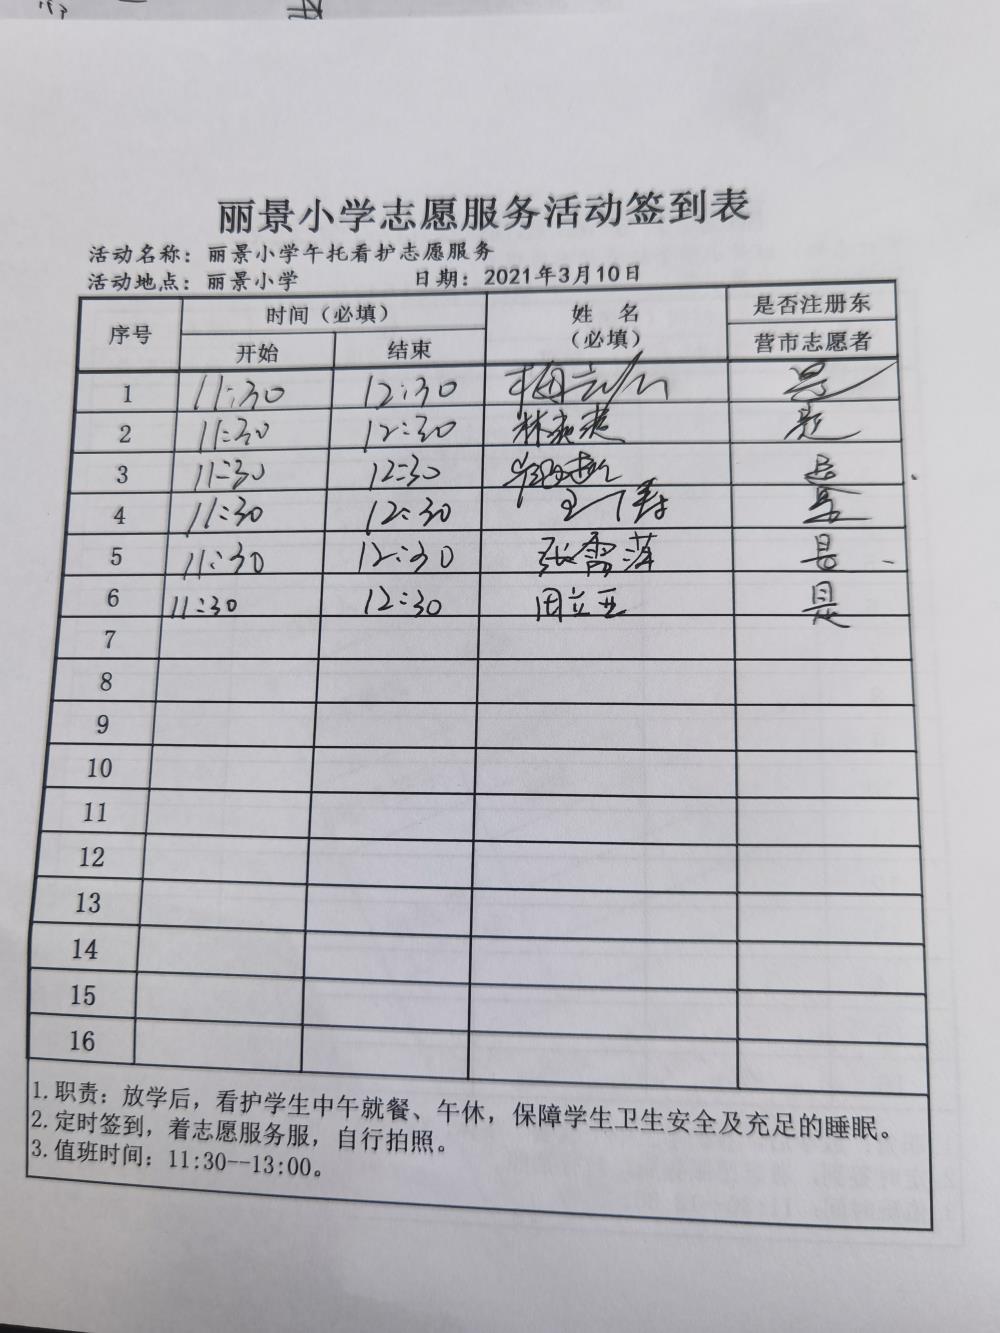 丽景小学志愿服务活动签到表
活动名称：丽景小学午托看护志愿服务
活动地点：丽景小学 日期：2021年3月10日
序号 时间（必填） 姓 名（必填） 是否注册东营市志愿者
开始 结束
1 11:30 12:30 是
2 11:30 12:30 是
3 11:30 12:30 是
4 11:30 12:30 是
5 11:30 12:30 张雪萍 是
6 11:30 12:30 田立亚 是
7
8
9
10
11
12
13
14
15
16
1.职责：放学后，看护学生中午就餐、午休，保障学生卫生安全及充足的睡眠。
2.定时签到，着志愿服务服，自行拍照。
3.值班时间：11:30--13:00。